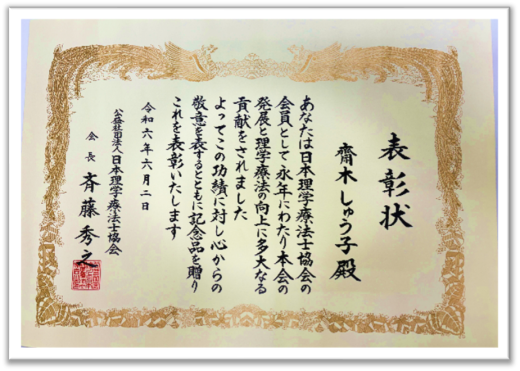 表彰状
齋木しゅう子殿
あなたは日本理学療法士協会の
会員として永年にわたり本会の
発展と理学療法の向上に多大なる
貢献をされました
よってこの功績に対し心からの
敬意を表するとともに記念品を贈り
これを表彰いたします
令和六年六月二日
公益社団法人日本理学療法士協会
会長 斉藤秀之